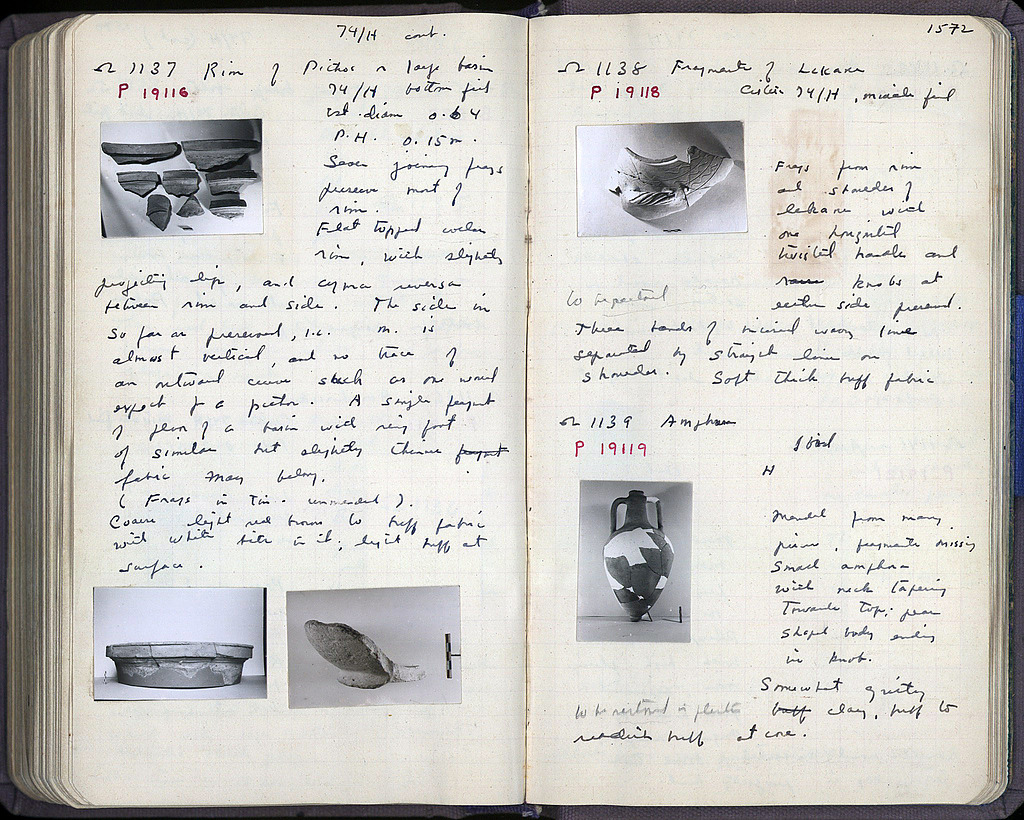 74/H cont.
Ω 1137 Rim of Pithos or large basin
P 19116 74/H bottom fill
est. diam 0.64
P.H. 0.15 m.
Seven joining frags
preserve most of
rim.
Flat topped
rim, with slightly
projecting lip, and cyma reversa
between rim and side. The side in
so far as preserved, i.e. m. is
almost vertical, and no trace of
an outward curve such as one would
expect for a pithos. A single fragment
of floor of a basin with ring foot
of similar but slightly thinner fragment
fabric may belong.
(Frags in Tin. unmended).
Coarse light red brown to buff fabric
with white bits in it; light buff at
surface.
1572
Ω 1138 Fragments of Lekane
P 19118 Cistern 74/H, middle fill
Frags from rim
and shoulder of
lekane with
one horizontal
twisted handle and
knobs at
either side preserved.
Three bands of incised wavy lines
separated by straight line on
shoulder. Soft thick buff fabric
Ω 1139 Amphora
P 19119 Ibid
H
Mended from many
pieces, fragments missing
Small amphora
with neck tapering
towards top; pear
shaped body ending
in knob.
Somewhat gritty
to be restored in plaster buff clay, buff to
reddish buff at core.